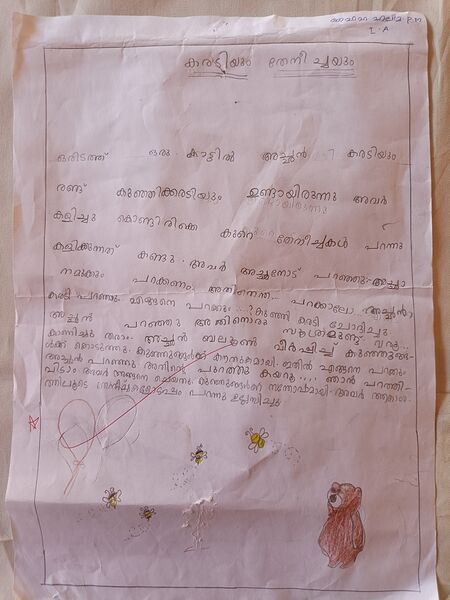 I - A
കരടിയും തേനീച്ചയും
ഒരിടത്ത് ഒരു കാട്ടിൽ അച്ഛൻ കരടിയും
രണ്ട് കുഞ്ഞിക്കരടിയും ഉണ്ടായിരുന്നു അവർ
കളിച്ചു കൊണ്ടിരിക്കെ കുറെ തേനീച്ചകൾ പറന്നു
കളിക്കുന്നത് കണ്ടു. അവർ അച്ഛനോട് പറഞ്ഞു. അച്ഛാ
നമുക്കും പറക്കണം. അതിനെന്താ പറക്കാലോ അച്ഛൻ
കരടി പറഞ്ഞു. എങ്ങനെ പറക്കും ...? കുഞ്ഞി കരടി ചോദിച്ചു.
അച്ഛൻ പറഞ്ഞു അതിനൊരു സൂത്രമുണ്ട് വരൂ
കാണിച്ചു തരാം. അച്ഛൻ ബലൂൺ വീർപ്പിച്ച് കുഞ്ഞുങ്ങ-
ൾക്ക് കൊടുത്തു. ഇതിൽ എങ്ങനെ പറക്കും
അച്ഛൻ പറഞ്ഞു അതിന്റെ പുറത്തു കയറൂ .... ഞാൻ പറത്തി-
വിടാം അവർ അങ്ങനെ ചെയ്തു. കുഞ്ഞുങ്ങൾക്ക് സന്തോഷമായി അവർ
പറന്നു ഉല്ലസിച്ചു